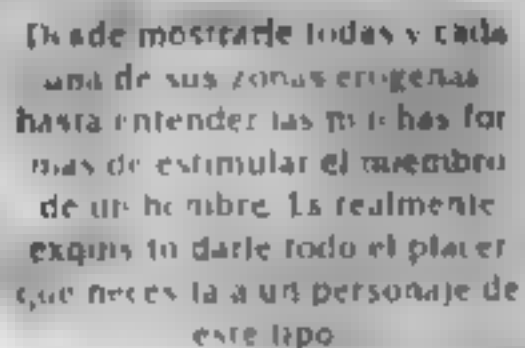 Desde mostrarle todas y cada
una de sus zonas erogenas
hasta entender las muchas for
mas de estimular el miembro
de un hombre. Es realmente
exquisito darle todo el placer
que necesita a un personaje de
este tipo